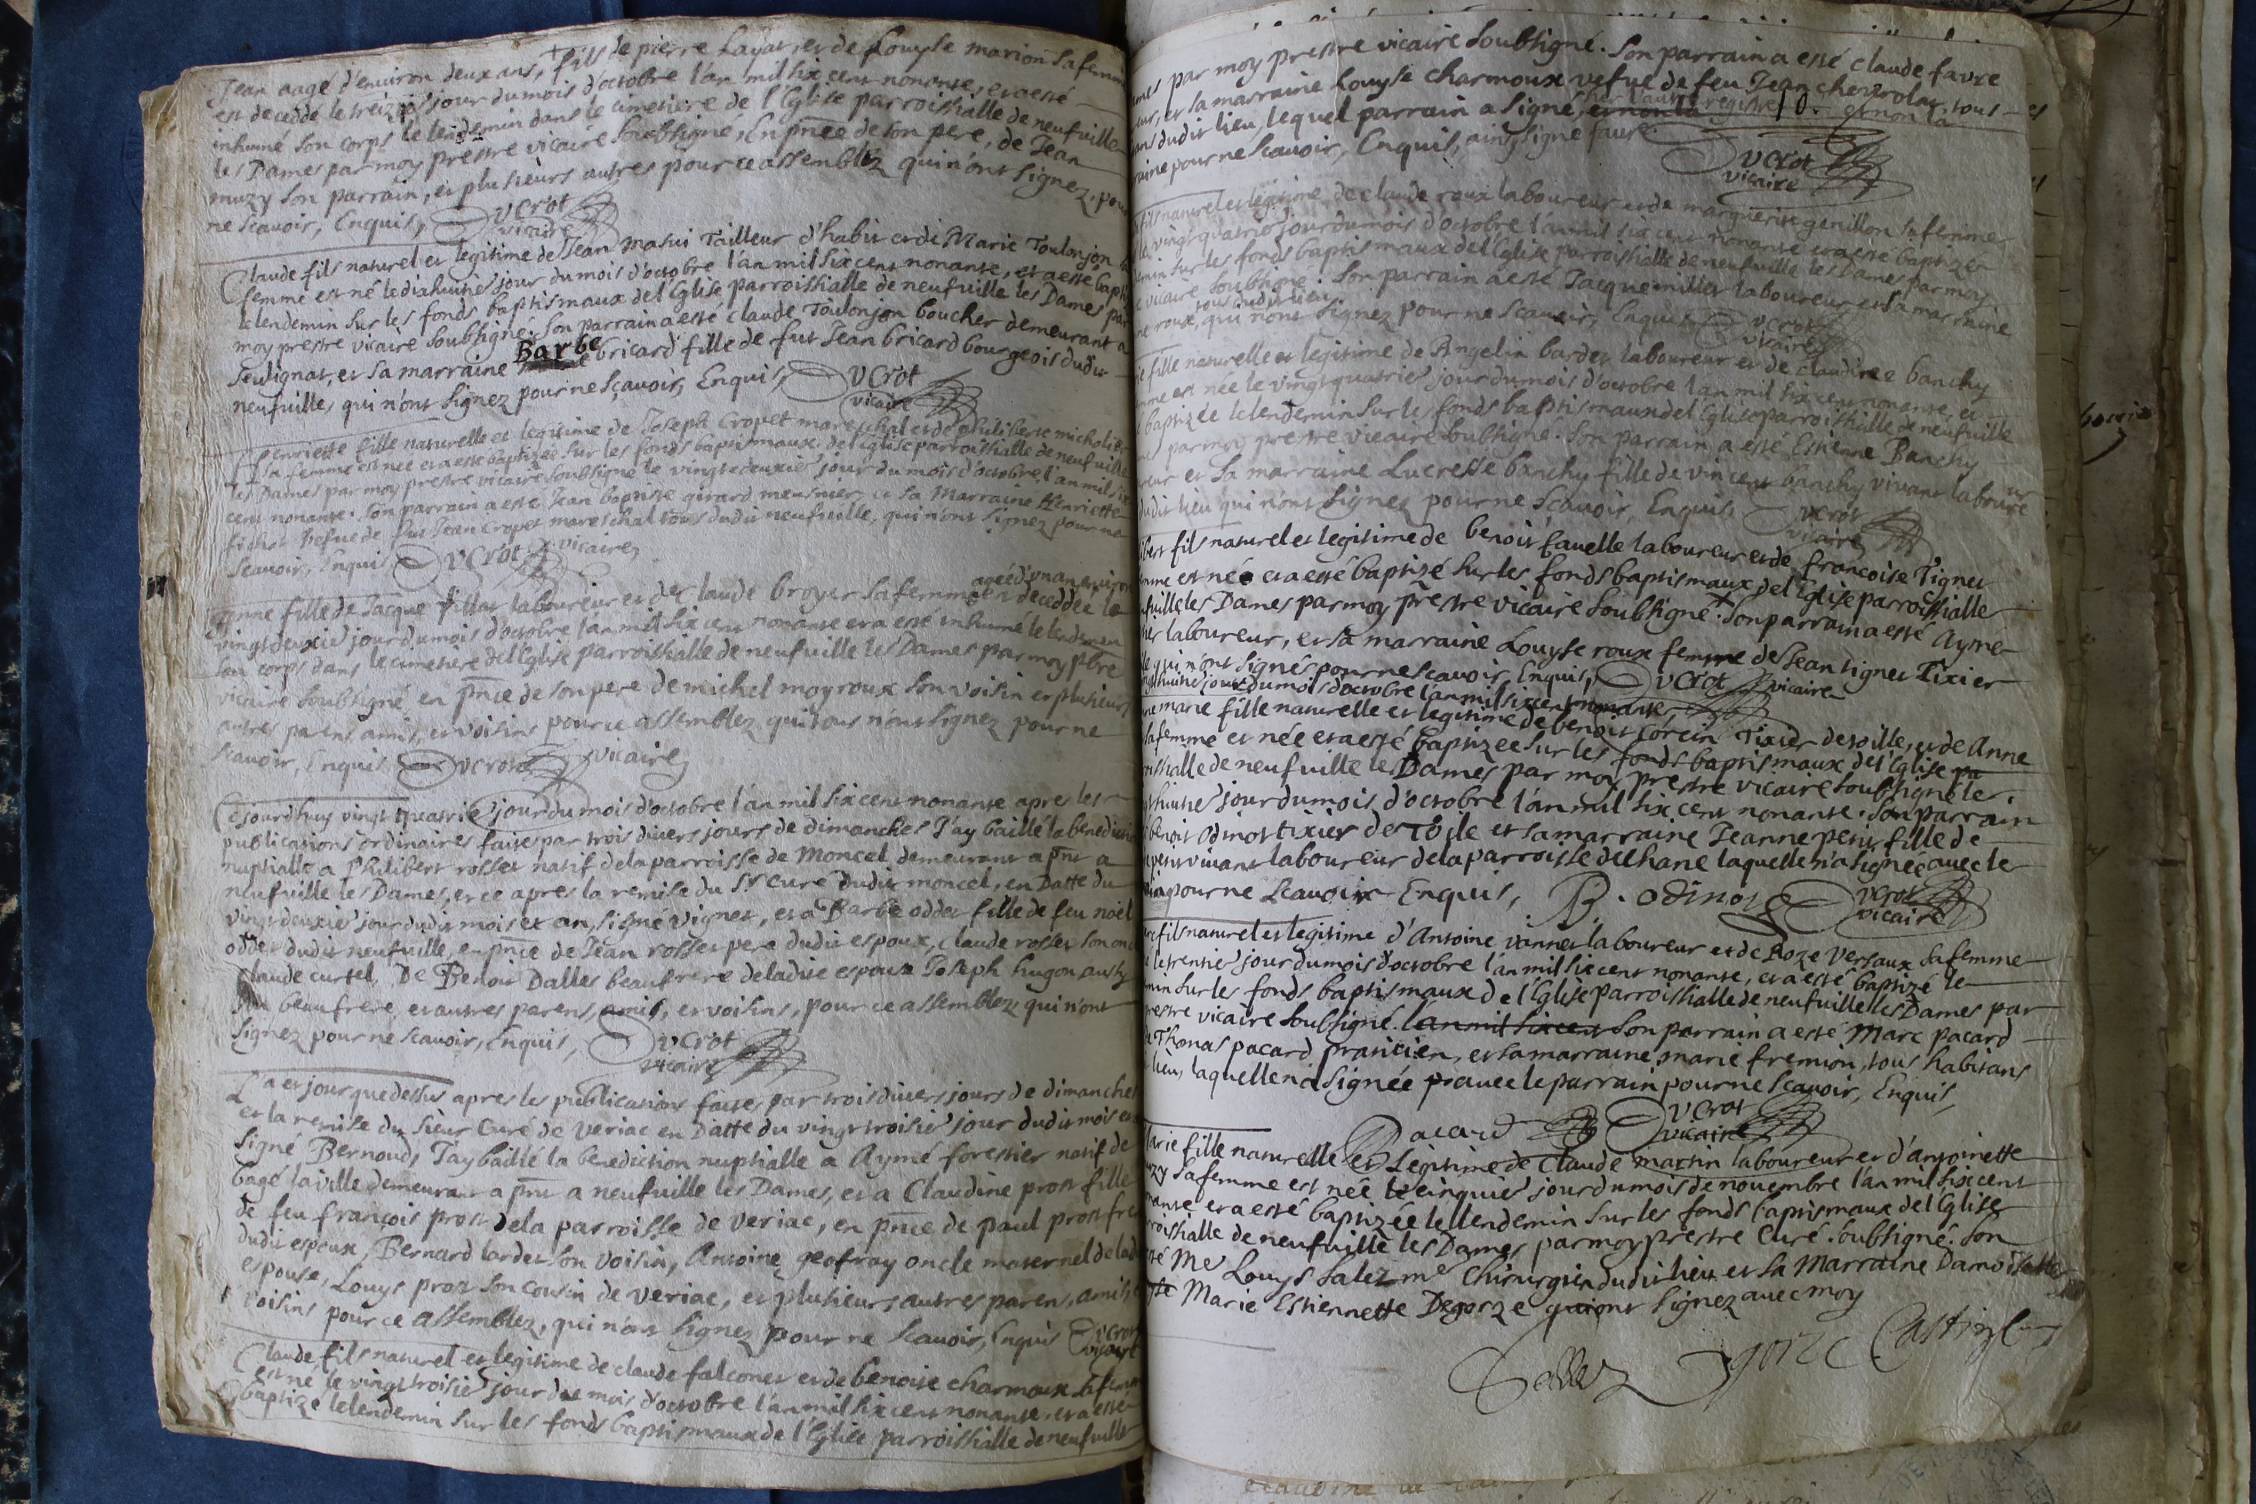 Jean aagé d'environ deux ans, + fils de pierre Layat, et de Louyse marion sa femme
est decedé le treizie jour du mois d'octobre l'an mil six cent nonante, et a esté
inhumé son corps le lendemin dans le cimetiere de l'Eglise parroissialle de neufuille
les Dames par moy prestre vicaire soubsigné, En pnce de son pere, de Jean
muzy son parrain, et plusieurs autres pour ce assemblez qui n'ont signez, pour
ne scavoir, Enquis, Vcrot
vicaire
Claude fils naturel et legitime de Jean masui Tailleur d'habit et de Marie Toulonjon sa
femme est né le dixhuitie jour du mois d'octobre l'an mil six cent nonante, et a esté bapti
le lendemin sur les fonds baptismaux de l'Eglise parroissialle de neufuille les Dames par
moy prestre vicaire soubsigné. Son parrain a esté claude Toulonjon boucher demeurant a
seulignat, et sa marraine Barbe bricard fille de fut Jean bricard bourgeois dudit
neufuille, qui n'ont signez pour ne sçavoir, Enquis, Vcrot
vicaire
Henriette fille naturelle et legitime de Joseph Cropet mareschal et de philiberte micholier
sa femme est née et a esté baptizée sur les fonds baptismaux de l'Eglise parroissialle de neufuille
les Dames par moy prestre vicaire soubsigné le vingtedeuxie jour du mois d'octobre l'an mil six
cent nonante. Son parrain a esté Jean baptiste girard meusnier, et sa Marraine Henriette
vefue de fut Jean Cropet mareschal tous dudit neufuille, qui n'ont signez pour ne
scavoir, Enquis Vcrot vicaire
agéé d'un an environ
fille de Jacque pillat laboureur et de claude broyer sa femme est decedée le
vingtdeuxie jour du mois d'octobre l'an mil six cent nonante et a esté inhumé le lendemin
son corps dans le cimetiere de l'Eglise parroissialle de neufuille les Dames par moy pbre
vicaire soubsigné en pnce de son pere de michel moyroux son voisin et plusieurs
autres parens amis, et voisins pour ce assemblez, qui tous n'ont signez pour ne
scavoir, Enquis Vcrot vicaire
Cejourdhuy vingt quatrie jour du mois d'octobre l'an mil six cent nonante apres les
publications ordinaires faites par trois divers jours de dimanches J'ay baillé la benediction
nuptialle a Philibert rosset natif de la parroisse de Moncel demeurant a pnt a
neufuille les Dames, et ce apres la remise du Sr Curé dudit moncel, en Datte du
vingtdeuxie jour dudit mois et an, signé vignet, et a Barbe oddet fille de feu noel
oddet dudit neufuille, en pnce de Jean rosset pere dudit espoux, claude rosset son oncle
Claude curtel, De Benoit Dalles beaufrere de ladite espouse Joseph hugon aussy
beaufrere, et autres parens, amis, et voisins, pour ce assemblez qui n'ont
signez pour ne scavoir, Enquis, Vcrot
vicaire
L'an et jour que dessus apres les publications faites par trois divers jours de dimanches
et la remise du Sieur Curé de Veriac en Datte du vingttroisie jour dudit mois et
Signé Bernoud, J'ay baillé la benediction nuptialle a Aymé forestier natif de
bagé la ville demeurant a pnt a neufuille les Dames, et a Claudine prost fille
de feu françois prost de la parroisse de Veriac, en pnce de paul prost frere
dudit espoux, Bernard lardet son voisin, Antoine geofray oncle maternel de ladite
espouse, Louys prost son cousin de veriac, et plusieurs autres parens, amis,
voisins pour ce assemblez, qui n'ont signez pour ne scavoir, Enquis Vcrot
vicaire
Claude fils naturel et legitime de claude falconet et de benoite charmoux sa femme
est né le vingttroisie jour du mois d'octobre l'an mil six cent nonante, et a esté
baptizé le lendemin sur les fonds baptismaux de l'Eglise parroissialle de neufuille
par moy prestre vicaire soubsigné. Son parrain a esté claude favre
et sa marraine Louyse charmoux vefue de feu Jean chevrolat, tous
dudit lieu, lequel parrain a signé, et non la
pour ne scavoir, Enquis, ainsy signé faure.
Vcrot
vicaire
fils naturel et legitime de claude roux laboureur et de marguerite genillon sa femme
vingtquatrie jour du mois d'octobre l'an mil six cent nonante et a esté baptizé
sur les fonds baptismaux de l'Eglise parroissialle de neufuille les Dames par moy
vicaire soubsigné. Son parrain a esté Jacque millet laboureur, et sa marraine
tous dudit lieu
roux, qui n'ont signez pour ne scavoir, Enquis Vcrot
vicaire
fille naturelle et legitime de Angelin bardet laboureur et de claudine banchy
est née le vingtquatrie jour du mois d'octobre l'an mil six cent nonante, et
baptizée le lendemin sur les fonds baptismaux de l'Eglise parroissialle de neufuille
par moy prestre vicaire soubsigné. Son parrain a esté Estienne Banchy
et sa marraine Lucresse banchy fille de vincent banchy vivant laboureur
dudit lieu qui n'ont signez pour ne scavoir, Enquis Vcrot
vicaire
fils naturel et legitime de benoit fauelle laboureur et de françoise Tignet
est né et a esté baptizé sur les fonds baptismaux de l'Eglise parroissialle
les Dames par moy prestre vicaire soubsigné + Son parrain a esté Aymé
laboureur, et sa marraine Louyse roux femme de Jean tignet Tixier
qui n'ont signés pour ne scavoir, Enquis, Vcrot vicaire
jour du mois d'octobre l'an mil six cent nonante,
marie fille naturelle et legitime de benoit Corcin Tixier de toille, et de Anne
sa femme est née et a esté baptizée sur les fonds baptismaux de l'Eglise pa
de neufuille les Dames par moy prestre vicaire soubsigné le
jour du mois d'octobre l'an mil six cent nonante. Son parrain
benoit Odinot tixier de Toile et sa marraine Jeanne petit fille de
petit vivant laboureur de la parroisse de Lhane laquelle n'a signée avec le
pour ne scavoir Enquis, B. odinot Vcrot
vicaire
fils naturel et legitime d'Antoine vannet laboureur et de Roze Versaux sa femme
le trentie jour du mois d'octobre l'an mil six cent nonante, et a esté baptizé le
sur les fonds baptismaux de l'Eglise parroissialle de neufuille les Dames par
prestre vicaire soubsigné. l'an mil six cent Son parrain a esté Marc pacard
Thomas pacard praticien, et sa marraine marie fremion, tous habitans
lieu, laquelle n'a signée avec le parrain pour ne scavoir, Enquis,
Pacard Vcrot
vicaire
Marie fille naturelle et Legitime de Claude martin laboureur et d'antoinette
sa femme est née le cinquie jour du mois de novembre l'an mil six cent
et a esté baptizée le lendemin sur les fonds baptismaux de l'Eglise
de neufuille les Dames par moy prestre Curé soubsigné. Son
Me Louys Salez me Chirurgien dudit lieu et sa Marraine Damoiselle
Marie Estiennette Degorze qui ont signez avec moy